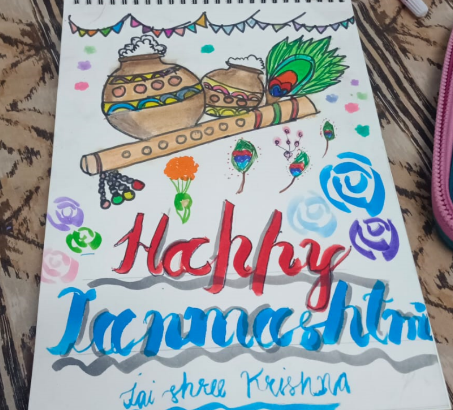 Happy
Janmashtmi
Jai shree Krishna